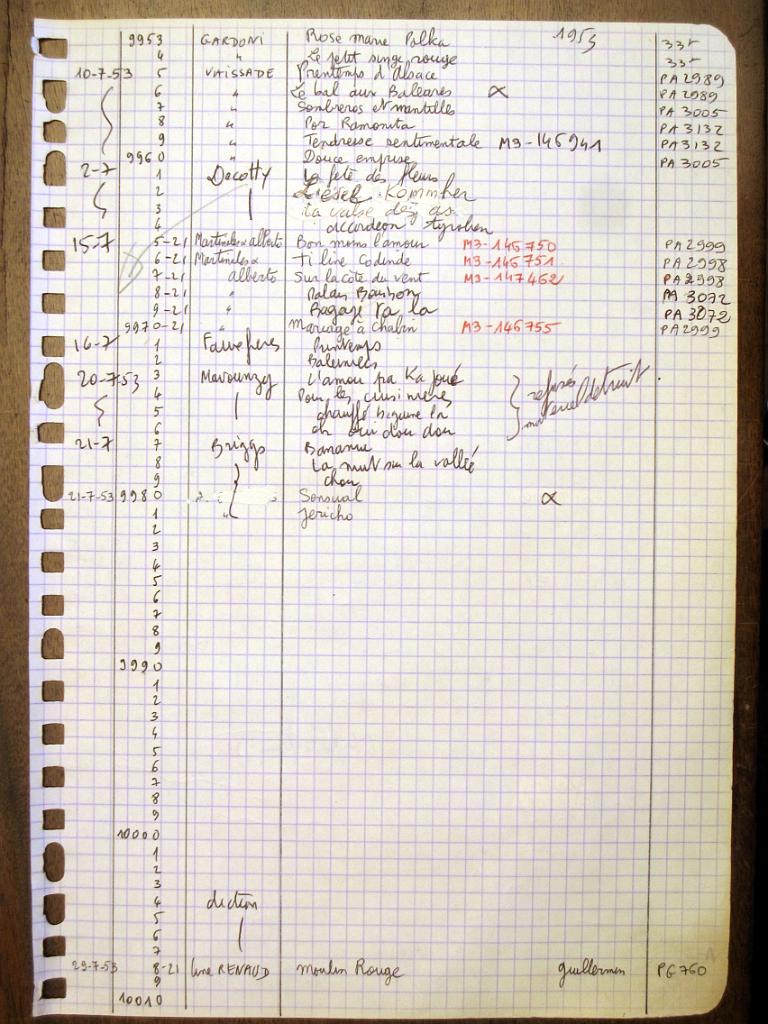 1953
9953 GARDONI Rose marie Polka 33r
4 " Le petit singe rouge 33r
10-7-53 5 VAISSADE Printemps d'Alsace PA 2989
6 " Le bal aux Baleares ∝ PA 2989
7 " Sombreros et mantilles PA 3005
8 " Por Ramonita PA 3132
9 " Tendresse sentimentale M3-146941 PA 3132
9960 " Douce emprise PA 3005
2-7 1 Decotty La fete des fleurs
2 Liesel Kommher
3 la valse des as
4 accordeon tyrolien
15-7 5-21 Martineles alberto Bon moms l'amour M3-146750 PA 2999
6-21 Martineles ti line Codinde M3-146751 PA 2998
7-21 alberto Sur la cote du vent M3-147462 PA 2998
8-21 " Palais Bourbon PA 3072
9-21 " Bagage ra la PA 3072
9970-21 " Mariage à Chalin M3-146755 PA 2999
16-7 1 Faure freres Printemps
2 Baleiniers
20-7-53 3 Mavounzy L'amou pa Ka joué
4 Pour les cuisinieres
5 chauffé biguine la
6 ch oui dou dou
refusés materiel detruit.
21-7 7 Briggs Bananie
8 La nuit sur la vallée
9 chou
21-7-53 9980 Sensual ∝
1 " Jericho
2
3
4
5
6
7
8
9
9990
1
2
3
4
5
6
7
8
9
10000
1
2
3
4 diction
5
6
7
29-7-53 8-21 line RENAUD Moulin Rouge guillermin PG 760
9
10010